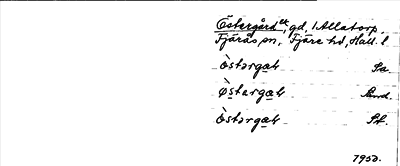 Östergård et, gd, i Allatorp,
Fjärås sn, Fjäre hd, Hall. l
Östərgaʈ Sa.
Östərgaʈ
Östərgaʈ St.
1950.